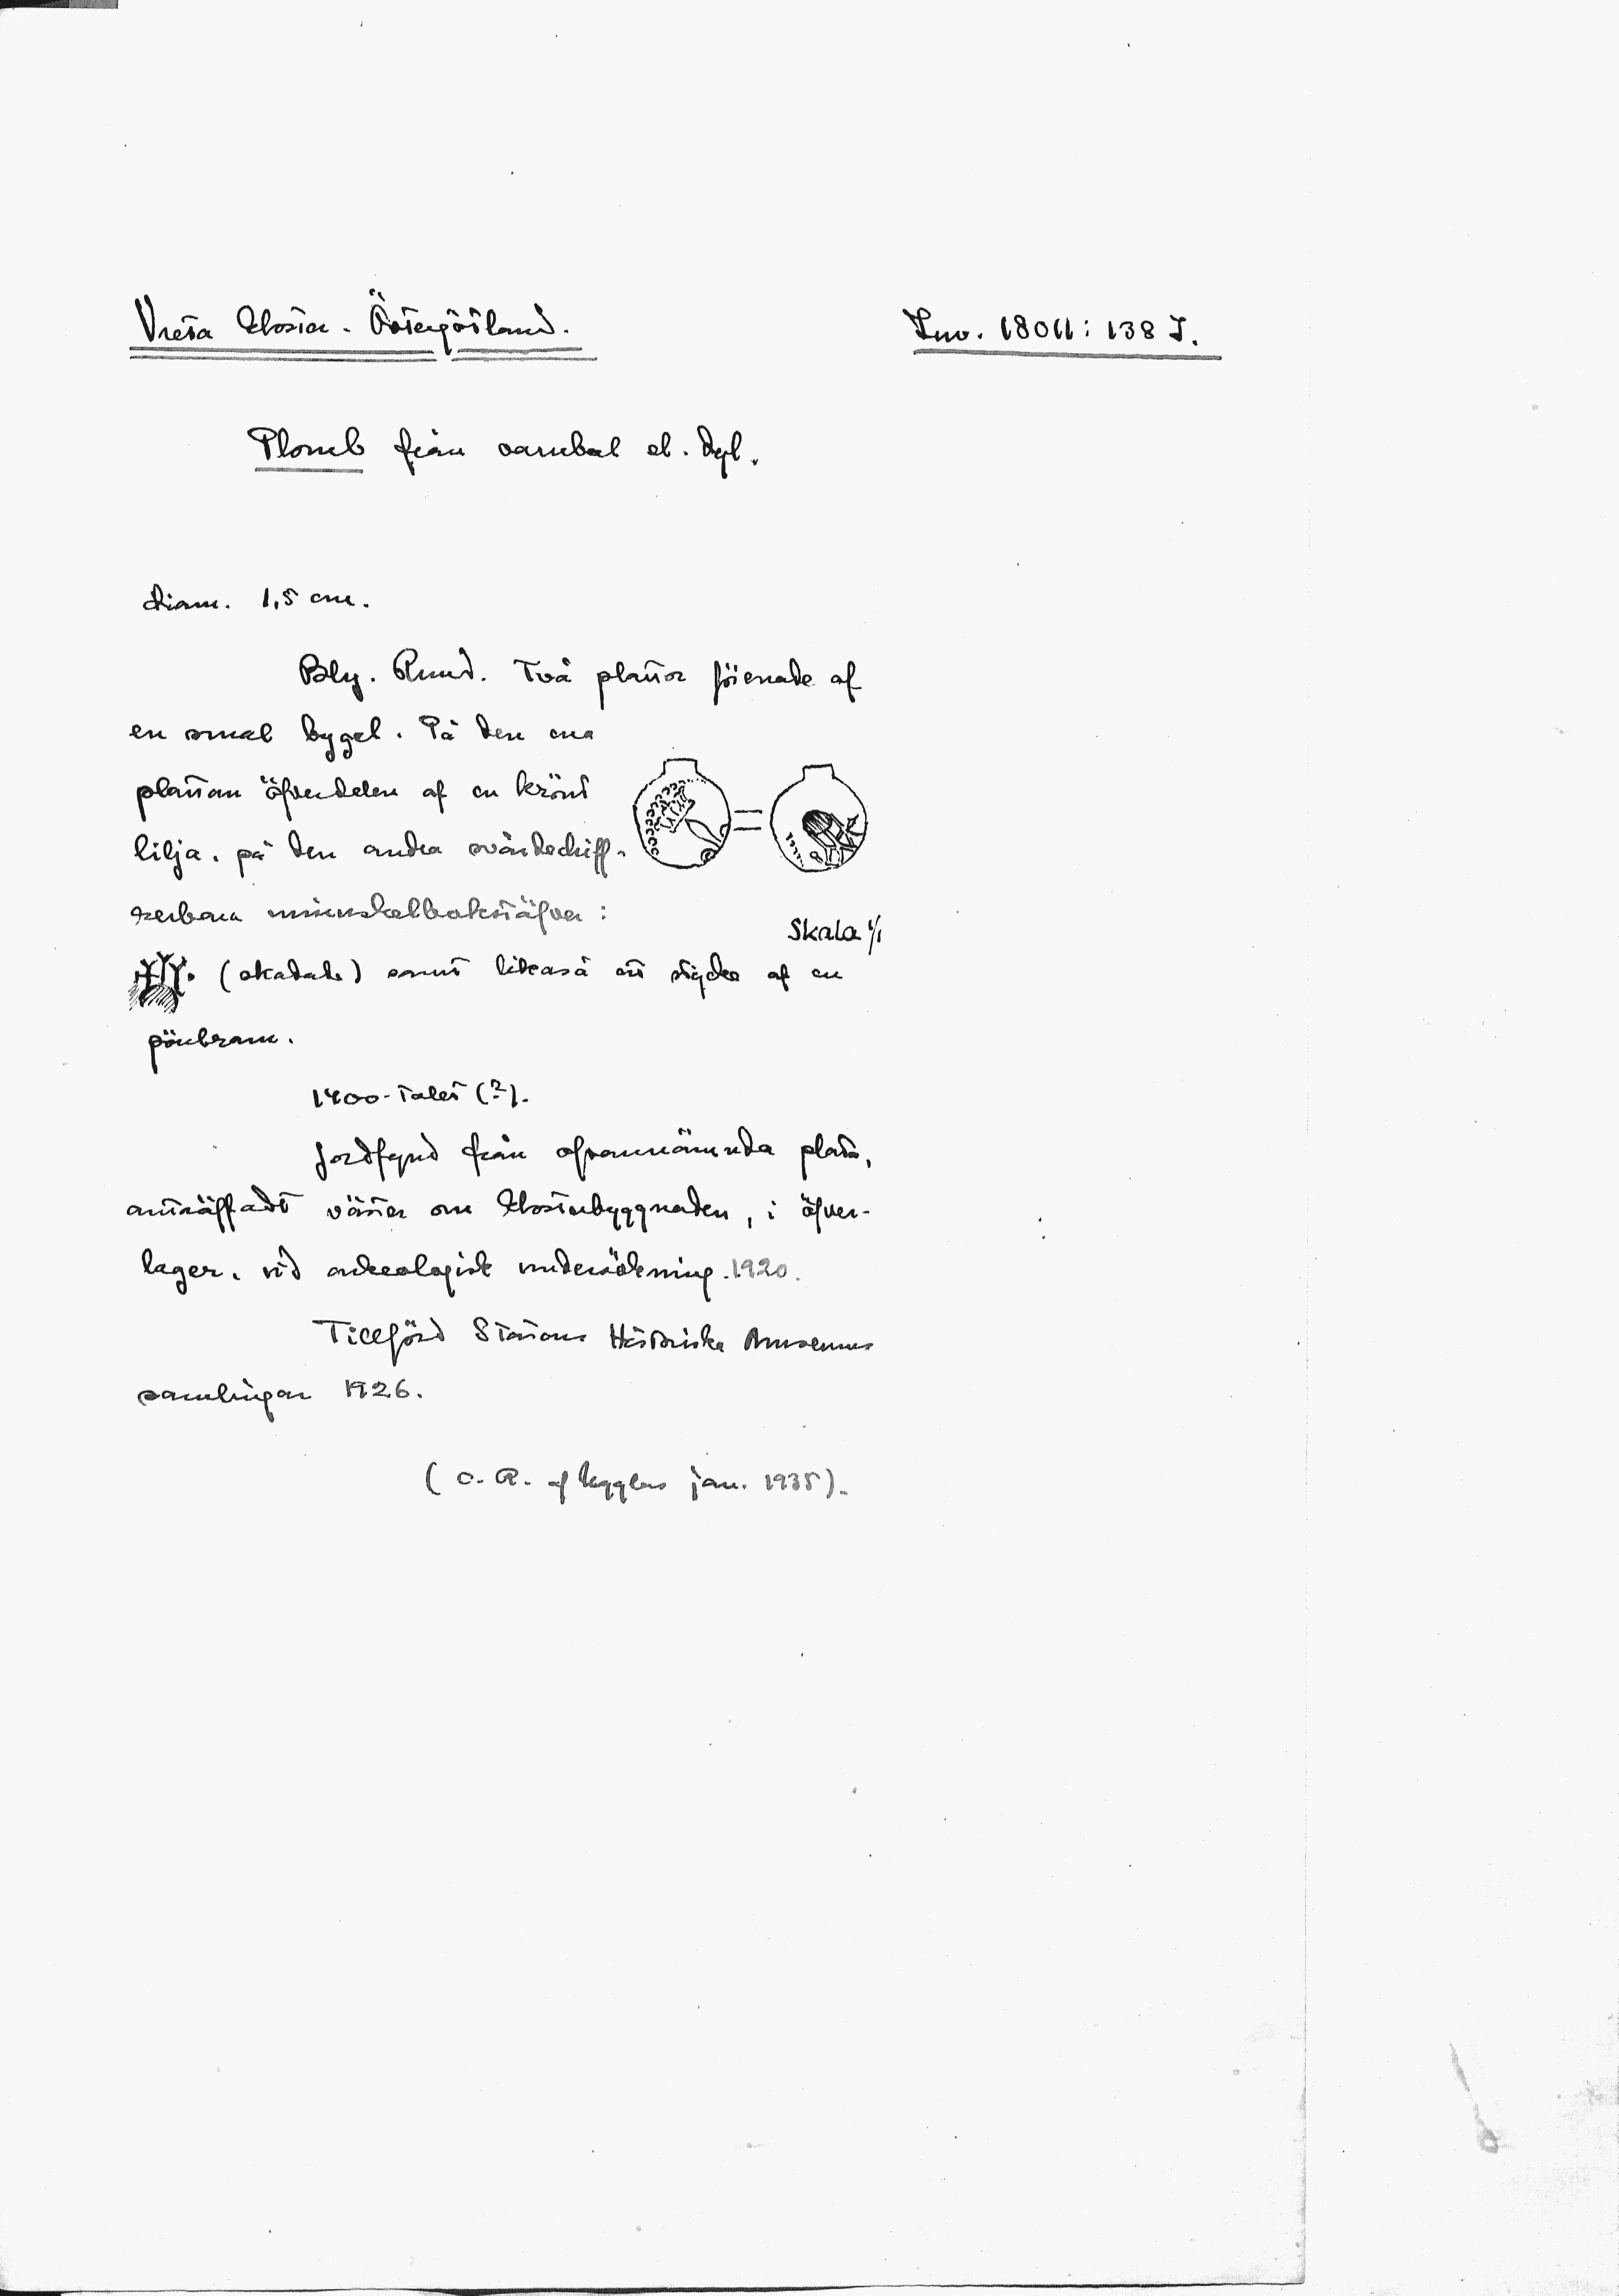 Vreta Kloster. Östergötland.
Inv. 18011: 138 J.
Plomb från varubal el. dyl.
diam. 1,5 cm.
Bly. Rund. Två plattor förenade af
en smal bygel. På den ena
plattan öfverdelen af en krönt
lilja, på den andra svårdechiff-
rerbara minuskelbokstäfver:
Skala 1/1
(skadade) samt likaså ett stycke af en
pärlram.
1400-talet (?).
Jordfynd från ofvannämnda plats,
anträffadt väster om klosterbyggnaden, i öfver-
lager, vid arkeologisk undersökning. 1920.
Tillförd Statens Historiska Museums
samlingar 1926.
(C. R. af Ugglas jan. 1935).